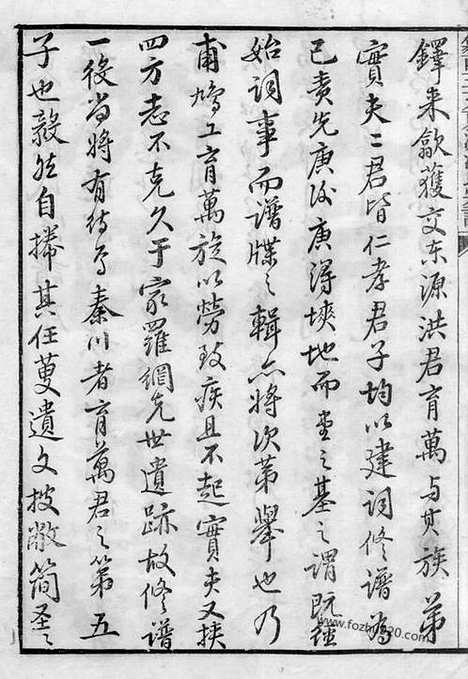 鐸来歙獲交东源洪君育萬与其族弟
實夫二君皆仁孝君子均以建祠修谱為
己责先庚後庚得墣地而垂之基之謂既経
始祠事而谱牒之輯亦將次第舉也乃
甫鳩工育萬旋以勞致疾且不起實夫又挟
四方志不克久于家羅網先世遺跡故修谱
一役尚將有待焉秦川者育萬君之第五
子也毅然自攜其任蒐遺文披敝簡至之
www.fozhu920.com